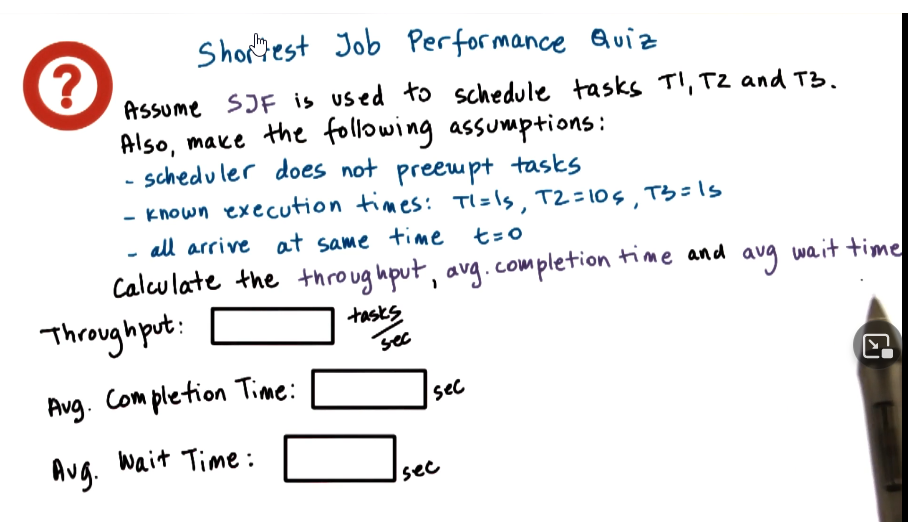 ?
Shortest Job Performance Quiz
Assume SJF is used to schedule tasks T1, T2 and T3.
Also, make the following assumptions:
- scheduler does not preempt tasks
- known execution times: T1=1s, T2=10s, T3=1s
- all arrive at same time t=0
Calculate the throughput, avg. completion time and avg wait time
Throughput: tasks/sec
Avg. Completion Time: sec
Avg. Wait Time: sec